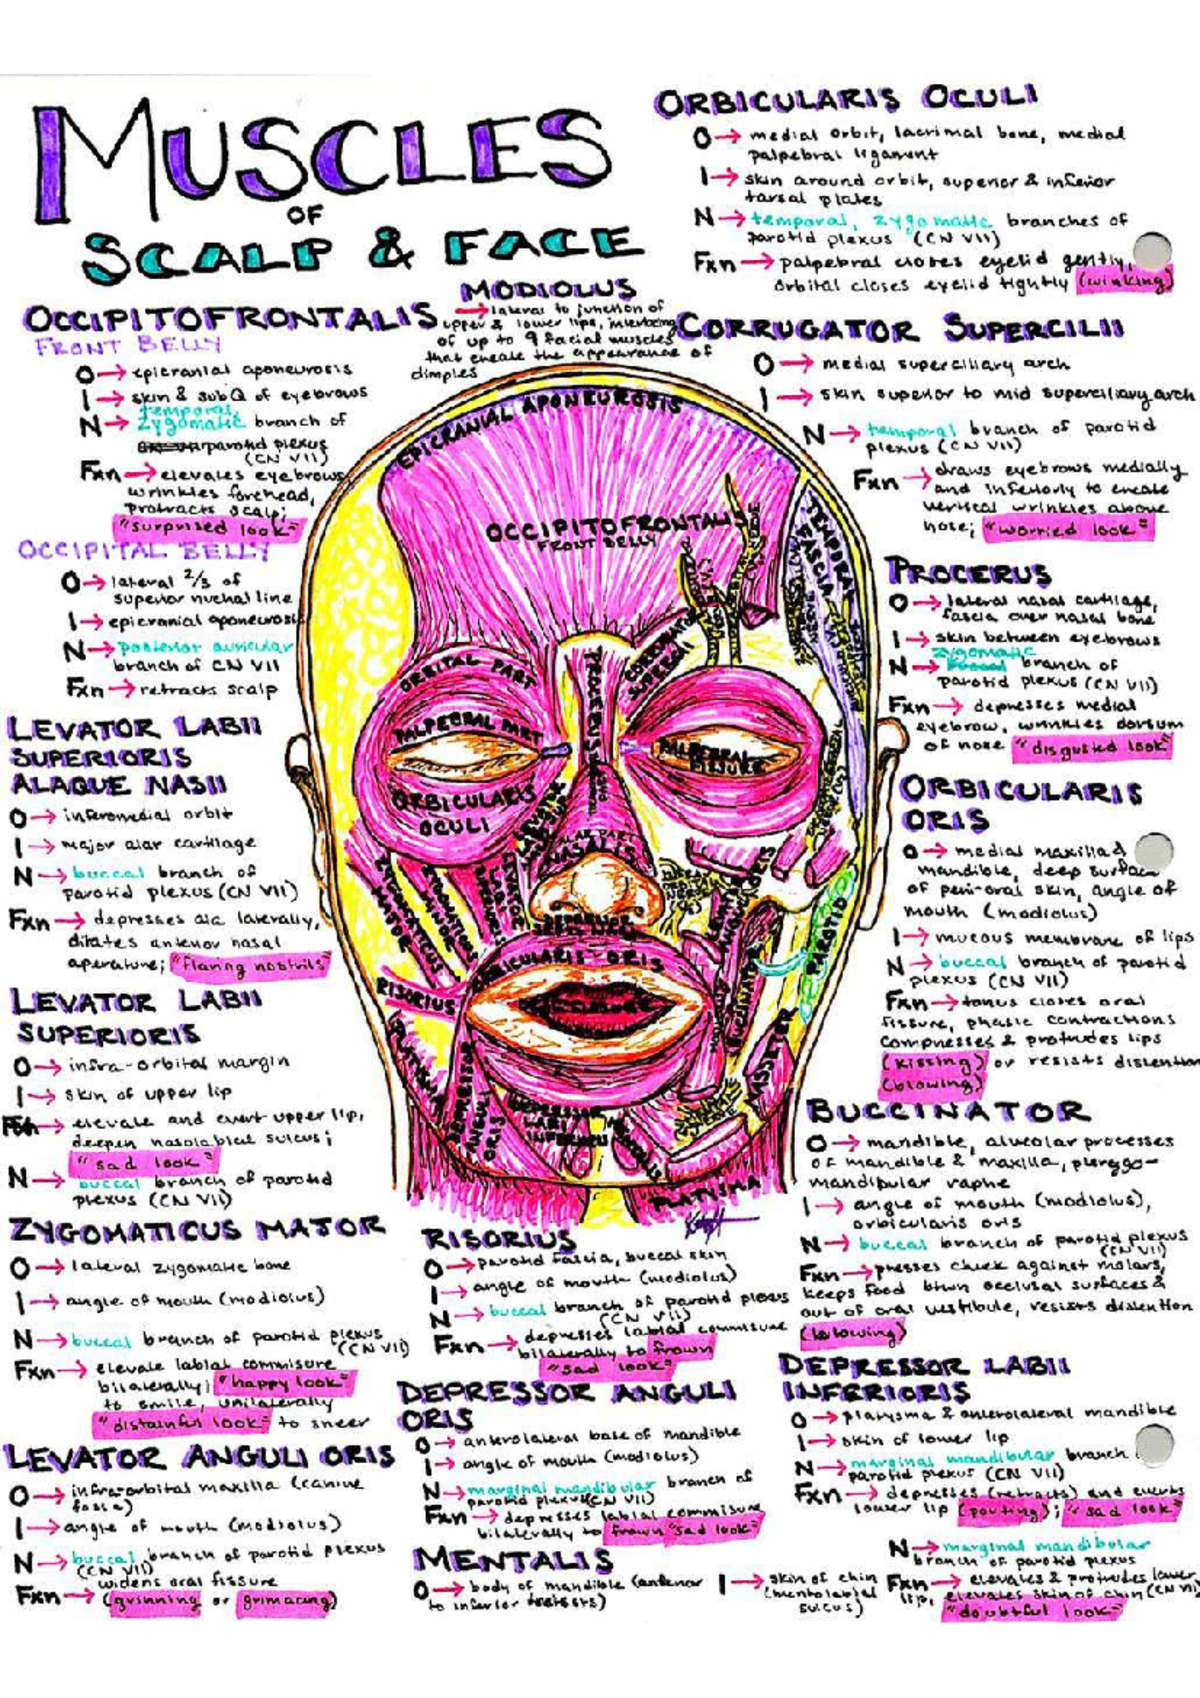 MUSCLES
OF
SCALP & FACE
MODIOLUS
→ lateral to junction of
upper & lower lips, interlacing
of up to 9 facial muscles
that create the appearance of
dimples
OCCIPITOFRONTALIS
FRONT BELLY
O → epicranial aponeurosis
I → skin & subQ of eyebrows
temporal,
N → zygomatic branch of
parotid plexus
(CN VII)
Fxn → elevates eyebrows,
wrinkles forehead,
protracts scalp;
"surprised look"
OCCIPITAL BELLY
O → lateral 2/3 of
superior nuchal line
I → epicranial aponeurosis
N → posterior auricular
branch of CN VII
Fxn → retracts scalp
LEVATOR LABII
SUPERIORIS
ALAQUE NASII
O → inferomedial orbit
I → major alar cartilage
N → buccal branch of
parotid plexus (CN VII)
Fxn → depresses ala laterally,
dilates anterior nasal
aperature; "flaring nostrils"
LEVATOR LABII
SUPERIORIS
O → infra-orbital margin
I → skin of upper lip
Fxn → elevate and evert upper lip,
deepen nasolabial sulcus;
"sad look"
N → buccal branch of parotid
plexus (CN VII)
ZYGOMATICUS MAJOR
O → lateral zygomatic bone
I → angle of mouth (modiolus)
N → buccal branch of parotid plexus
(CN VII)
Fxn → elevate labial commisure
bilaterally; "happy look"
to smile, unilaterally
"distainful look" to sneer
LEVATOR ANGULI ORIS
O → infraorbital maxilla (canine
fossa)
I → angle of mouth (modiolus)
N → buccal branch of parotid plexus
(CN VII)
Fxn → widens oral fissure
(grinning or grimacing)
ORBICULARIS OCULI
O → medial orbit, lacrimal bone, medial
palpebral ligament
I → skin around orbit, superior & inferior
tarsal plates
N → temporal, zygomatic branches of
parotid plexus (CN VII)
Fxn → palpebral closes eyelid gently,
orbital closes eyelid tightly (winking)
CORRUGATOR SUPERCILII
O → medial superciliary arch
I → skin superior to mid superciliary arch
N → temporal branch of parotid
plexus (CN VII)
Fxn → draws eyebrows medially
and inferiorly to create
vertical wrinkles above
nose; "worried look"
PROCERUS
O → lateral nasal cartilage,
fascia over nasal bone
I → skin between eyebrows
zygomatic
N → branch of
parotid plexus (CN VII)
Fxn → depresses medial
eyebrow, wrinkles dorsum
of nose "disgusted look"
ORBICULARIS
ORIS
O → medial maxilla &
mandible, deep surface
of peri-oral skin, angle of
mouth (modiolus)
I → mucous membrane of lips
N → buccal branch of parotid
plexus (CN VII)
Fxn → tonus closes oral
fissure, phasic contractions
compresses & protrudes lips
(kissing) or resists distention
(blowing)
BUCCINATOR
O → mandible, alveolar processes
of mandible & maxilla, pterygo-
mandibular raphe
I → angle of mouth (modiolus),
orbicularis oris
N → buccal branch of parotid plexus
(CN VII)
Fxn → presses cheek against molars,
keeps food btwn occlusal surfaces &
out of oral vestibule, resists distention
(blowing)
RISORIUS
O → parotid fascia, buccal skin
I → angle of mouth (modiolus)
N → buccal branch of parotid plexus
(CN VII)
Fxn → depresses labial commisure
bilaterally to frown
"sad look"
DEPRESSOR ANGULI
ORIS
O → anterolateral base of mandible
I → angle of mouth (modiolus)
N → marginal mandibular branch of
parotid plexus (CN VII)
Fxn → depresses labial commisure
bilaterally to frown "sad look"
DEPRESSOR LABII
INFERIORIS
O → platysma & anterolateral mandible
I → skin of lower lip
N → marginal mandibular branch
parotid plexus (CN VII)
Fxn → depresses (retracts) and everts
lower lip (pouting); "sad look"
MENTALIS
O → body of mandible (anterior
to inferior incisors)
I → skin of chin
(mentolabial
sulcus)
N → marginal mandibular
branch of parotid plexus
(CN VII)
Fxn → elevates & protrudes lower
lip, elevates skin of chin
"doubtful look"
EPICRANIAL APONEUROSIS
OCCIPITOFRONTALIS
FRONT BELLY
TEMPORAL
FASCIA
CORRUGATOR
SUPERCILII
PROCERUS
ORBITAL PART
PALPEBRAL PART
ORBICULARIS
OCULI
PALPEBRAL
FISSURE
ALAR PART
NASALIS
ZYGOMATICUS
MAJOR
ZYGOMATICUS
MINOR
ORBICULARIS ORIS
RISORIUS
PLATYSMA
DEPRESSOR
ANGULI
ORIS
DEPRESSOR
LABII
INFERIORIS
MENTALIS
BUCCINATOR
MASSETER
PAROTID
PLATYSMA